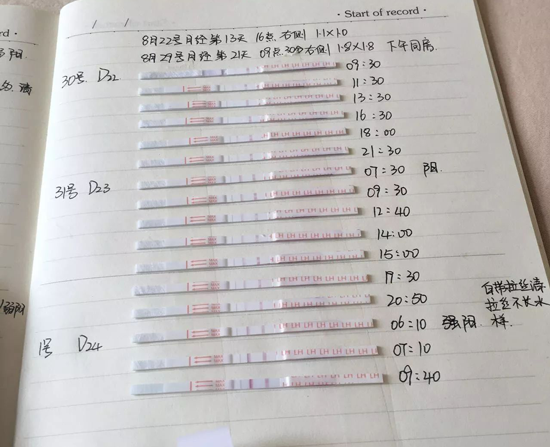 · Start of record ·
8月22号月经第13天 16点 右侧 1.1×1.0
8月29号月经第21天 09点30多右侧 1.8×1.8 下午同房
30号 D22
09:30
11:30
13:30
16:30
18:00
21:30
07:30 阳
31号 D23
09:30
12:40
14:00
15:00
17:30
20:50
白带拉丝清
拉丝不长水
样
06:10 强阳
1号 D24
07:10
09:40
强阳
LH LH LH LH LH LH